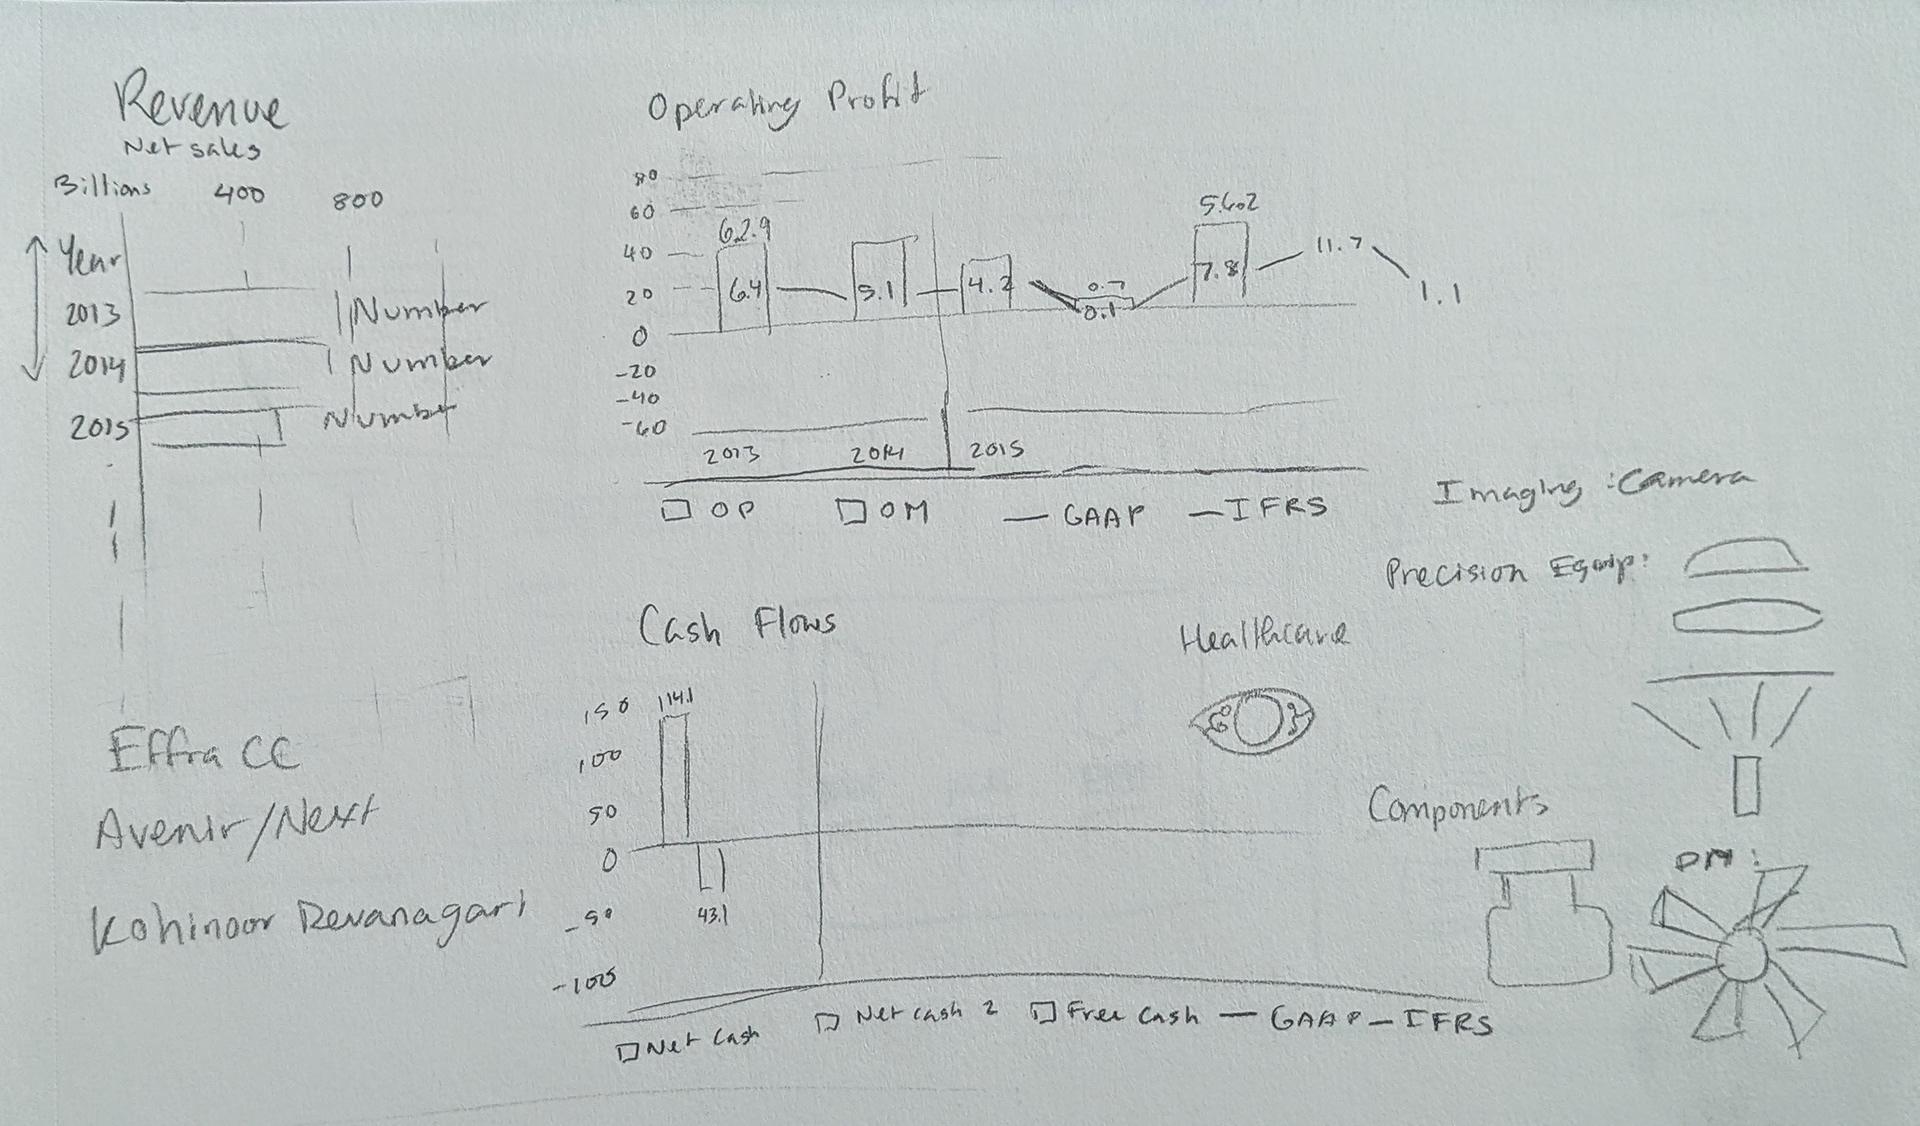 Revenue
Net sales
Billions 400 800
Year
2013 Number
2014 Number
2015 Number
Operating Profit
80
60
40
20
0
-20
-40
-60
62.9
6.4
5.1
4.2
0.7
0.1
5.6.2
7.8
11.7
1.1
2013 2014 2015
OP OM — GAAP — IFRS
Imaging : Camera
Precision Equip:
Healthcare
Components
Cash Flows
150
100
50
0
-50
-100
114.1
43.1
Net Cash Net cash 2 Free Cash — GAAP — IFRS
Effra CC
Avenir/Next
Kohinoor Devanagari